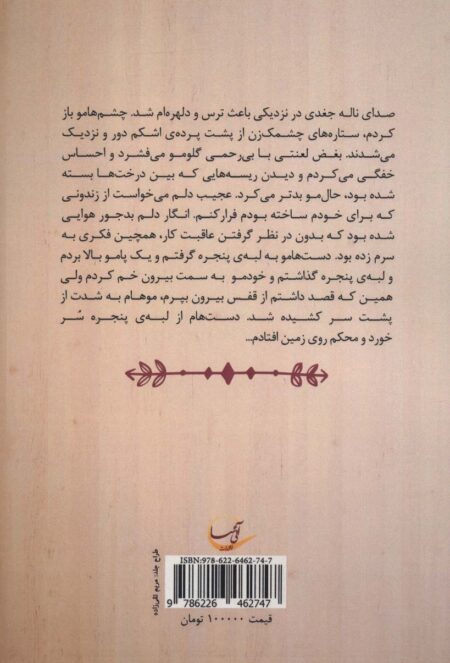 صدای ناله جغدی در نزدیکی باعث ترس و دلهره‌ام شد. چشم‌هامو باز
کردم، ستاره‌های چشمک‌زن از پشت پرده‌ی اشکم دور و نزدیک
می‌شدند. بغض لعنتی با بی‌رحمی گلومو می‌فشرد و احساس
خفگی می‌کردم و دیدن ریسه‌هایی که بین درخت‌ها بسته
شده بود، حال‌مو بدتر می‌کرد. عجیب دلم می‌خواست از زندونی
که برای خودم ساخته بودم فرار کنم. انگار دلم بدجور هوایی
شده بود که بدون در نظر گرفتن عاقبت کار، همچین فکری به
سرم زده بود. دست‌هامو به لبه‌ی پنجره گرفتم و یک پامو بالا بردم
و لبه‌ی پنجره گذاشتم و خودمو به سمت بیرون خم کردم ولی
همین که قصد داشتم از قفس بیرون بپرم، موهام به شدت از
پشت سر کشیده شد. دست‌هام از لبه‌ی پنجره سُر
خورد و محکم روی زمین افتادم...
طراح جلد: مریم تقی‌زاده
ISBN:978-622-6462-74-7
9 786226 462747
قیمت ۱۰۰۰۰۰ تومان